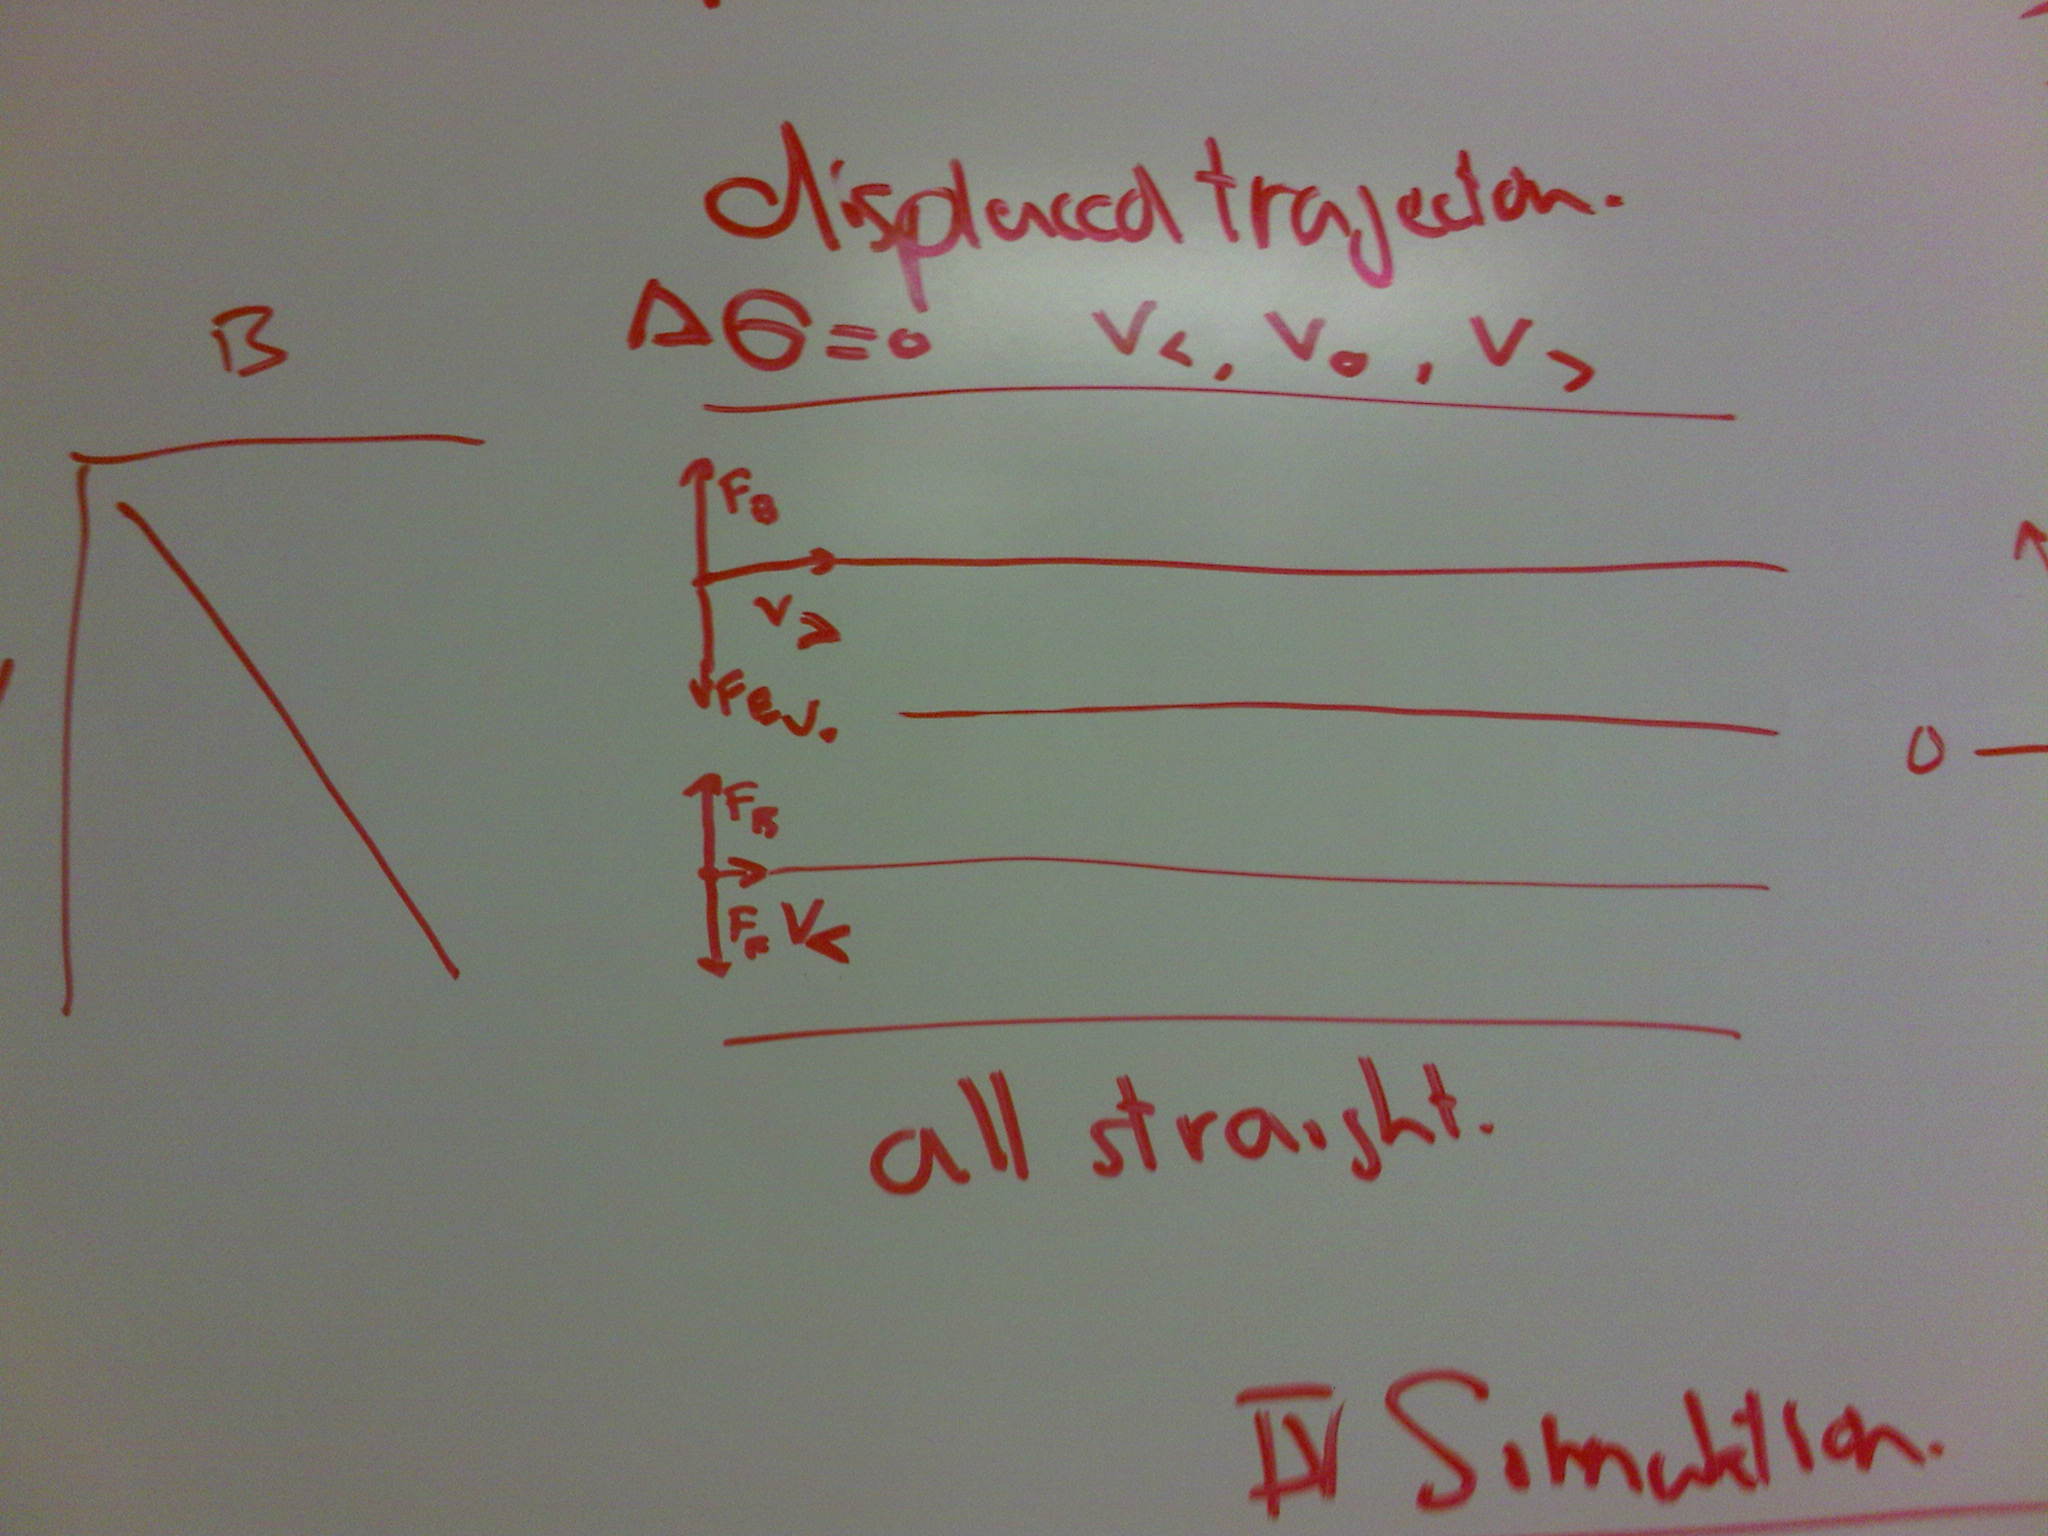 displaced trajecton.
Δθ=0 V<, V0, V>
B
FB
V>
Fe V0
0
FB
V<
all straight.
IV Simulation.